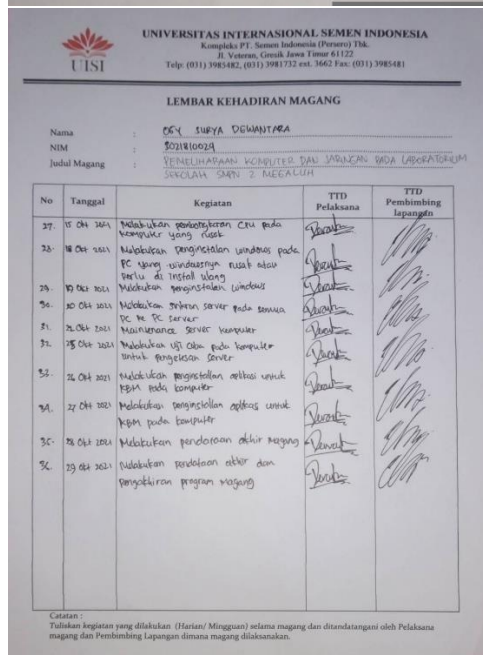 UISI
UNIVERSITAS INTERNASIONAL SEMEN INDONESIA
Kompleks PT. Semen Indonesia (Persero) Tbk.
Jl. Veteran, Gresik Jawa Timur 61122
Telp: (031) 3985482, (031) 3981732 ext. 3662 Fax: (031) 3985481
LEMBAR KEHADIRAN MAGANG
Nama : OGY SURYA DEWANTARA
NIM : 3021810029
Judul Magang : PEMELIHARAAN KOMPUTER DAN JARINGAN PADA LABORATORIUM
SEKOLAH SMPN 2 MEGALUH
No Tanggal Kegiatan TTD Pelaksana TTD Pembimbing lapangan
27. 15 Okt 2021 Melakukan pembongkaran CPU pada
komputer yang rusak
28. 18 Okt 2021 Melakukan penginstalan windows pada
PC yang windowsnya rusak atau
perlu di install ulang
29. 19 Okt 2021 Melakukan penginstalan windows
30. 20 Okt 2021 Melakukan sinkron server pada semua
PC ke PC server
31. 22 Okt 2021 Maintenance server komputer
32. 25 Okt 2021 Melakukan uji coba pada komputer
untuk pengetesan server
33. 26 Okt 2021 Melakukan penginstallan aplikasi untuk
KBM pada komputer
34. 27 Okt 2021 Melakukan penginstallan aplikasi untuk
KBM pada komputer
35. 28 Okt 2021 Melakukan pendataan akhir Magang
36. 29 Okt 2021 Melakukan pendataan akhir dan
pengakhiran program Magang
Catatan :
Tuliskan kegiatan yang dilakukan (Harian/ Mingguan) selama magang dan ditandatangani oleh Pelaksana
magang dan Pembimbing Lapangan dimana magang dilaksanakan.